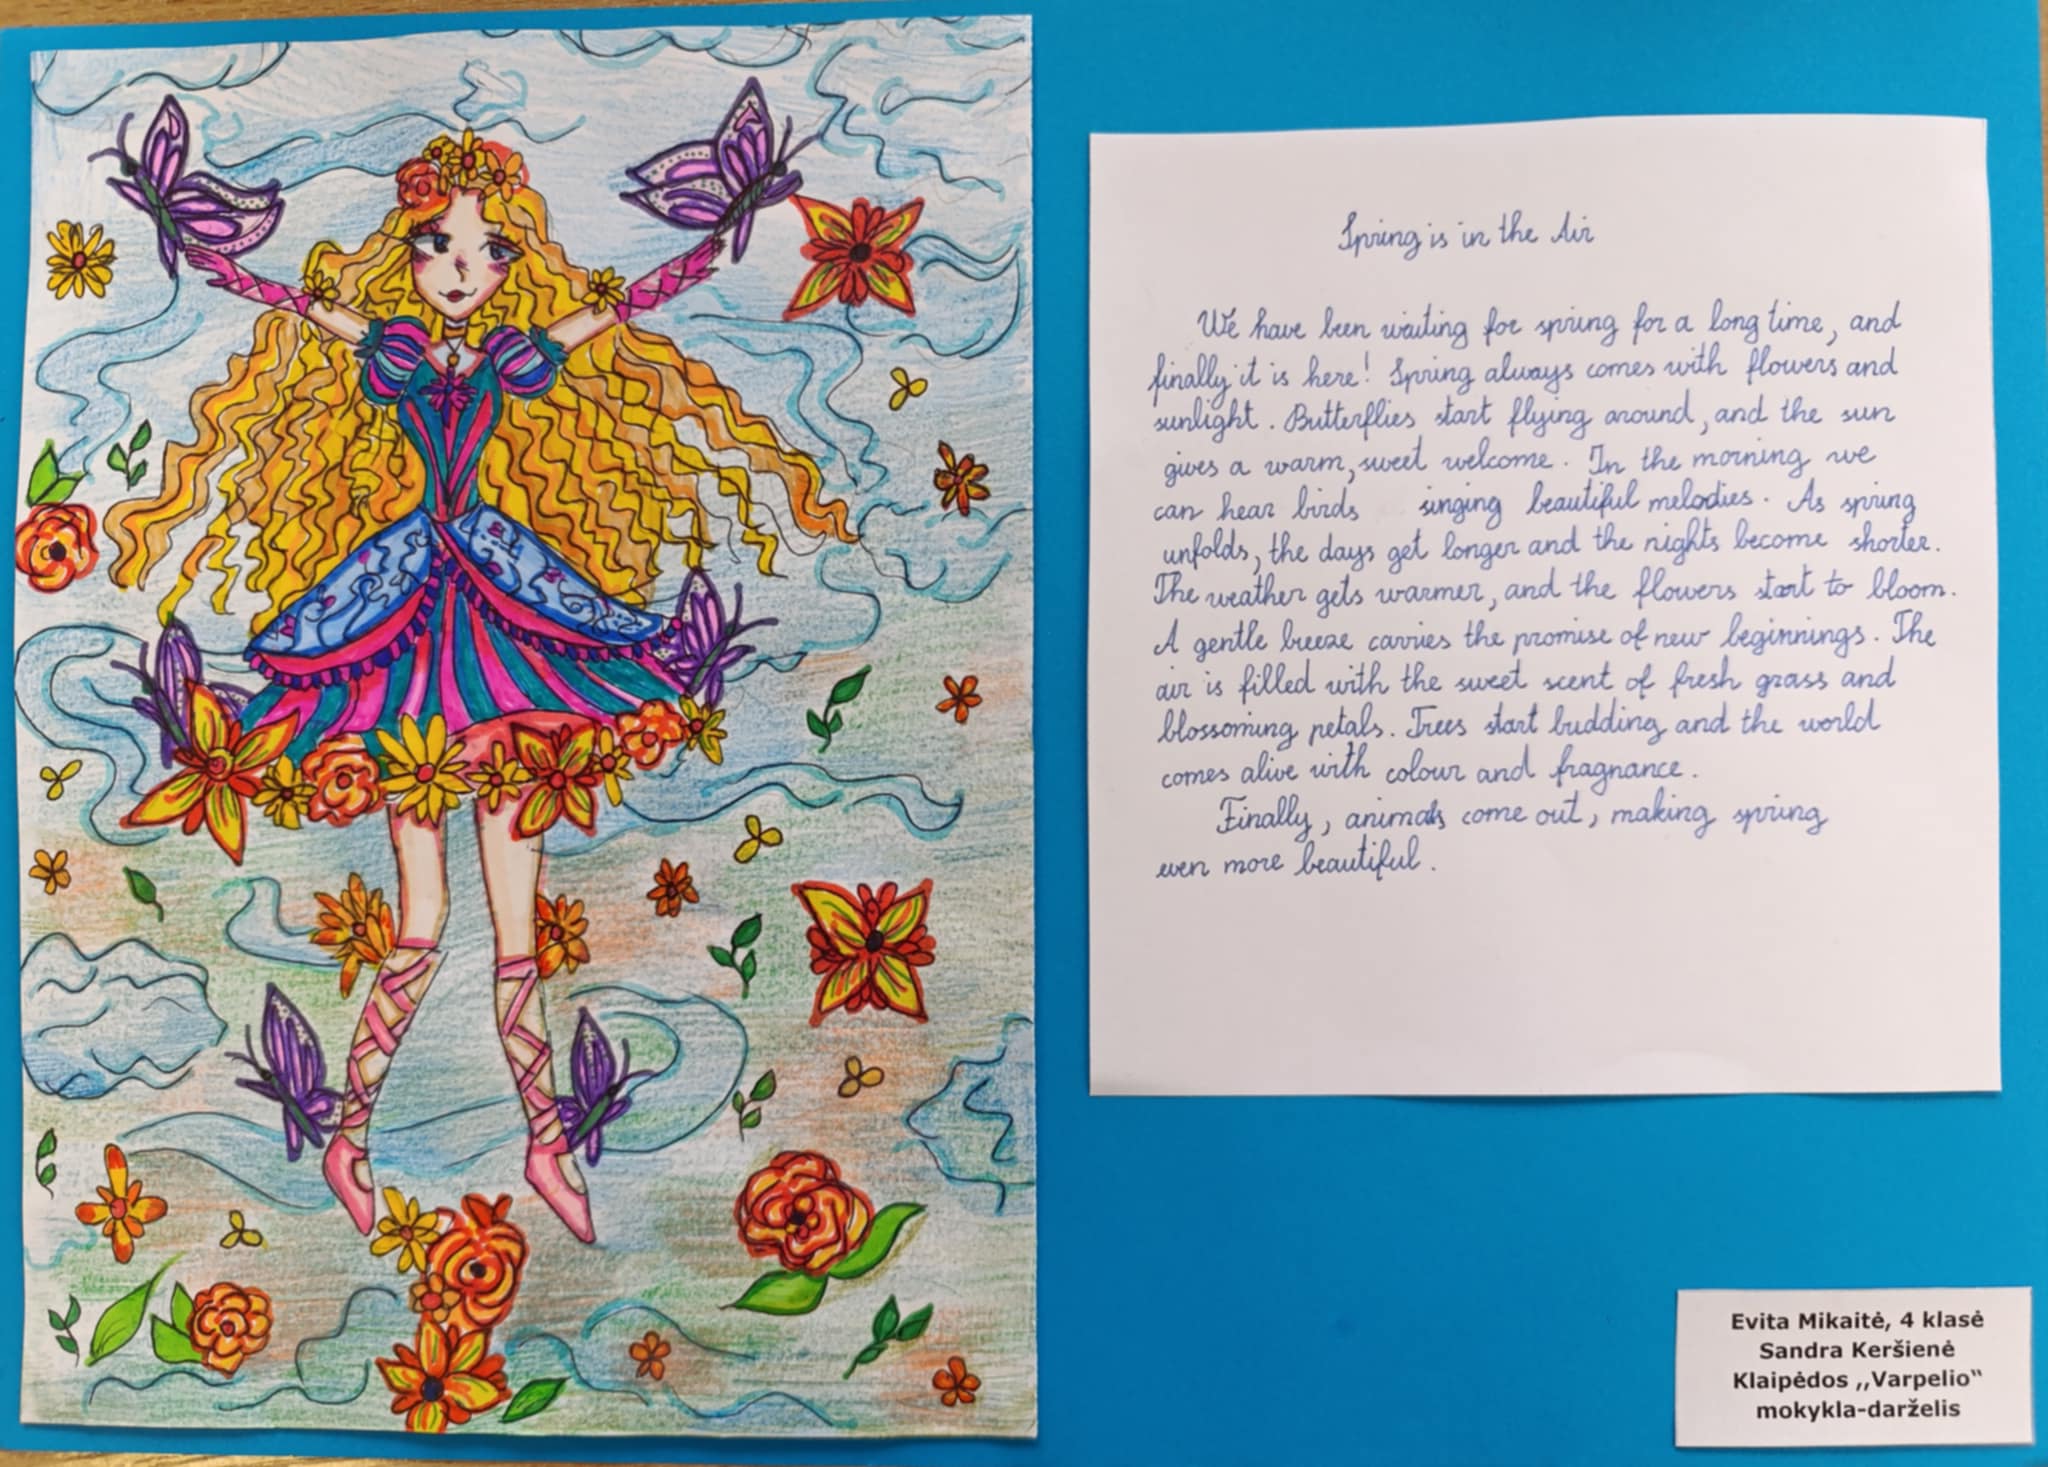 Spring is in the Air
We have been waiting for spring for a long time, and
finally it is here! Spring always comes with flowers and
sunlight. Butterflies start flying around, and the sun
gives a warm, sweet welcome. In the morning we
can hear birds singing beautiful melodies. As spring
unfolds, the days get longer and the nights become shorter.
The weather gets warmer, and the flowers start to bloom.
A gentle breeze carries the promise of new beginnings. The
air is filled with the sweet scent of fresh grass and
blossoming petals. Trees start budding and the world
comes alive with colour and fragnance.
Finally, animals come out, making spring
even more beautiful.
Evita Mikaitė, 4 klasė
Sandra Keršienė
Klaipėdos ,,Varpelio“
mokykla-darželis